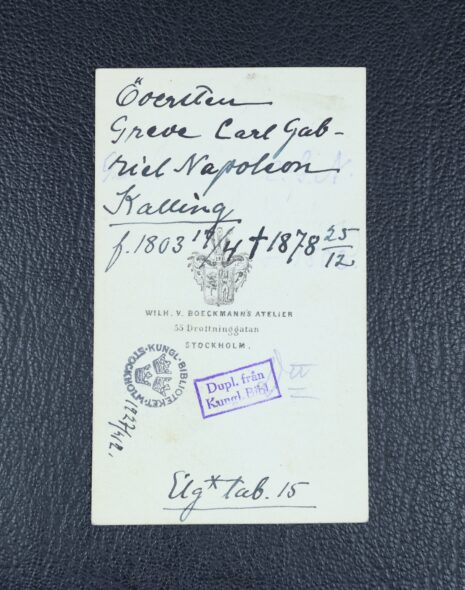 Översten
Greve Carl Gab-
riel Napoleon
Kalling
f. 1803 17/4 † 1878 25/12
WILH. V. BOECKMANN'S ATELIER
55 Drottninggatan
STOCKHOLM.
KUNGL. BIBLIOTEKET STOCKHOLM
Dupl. från
Kungl. Bibl.
Elg* tab. 15